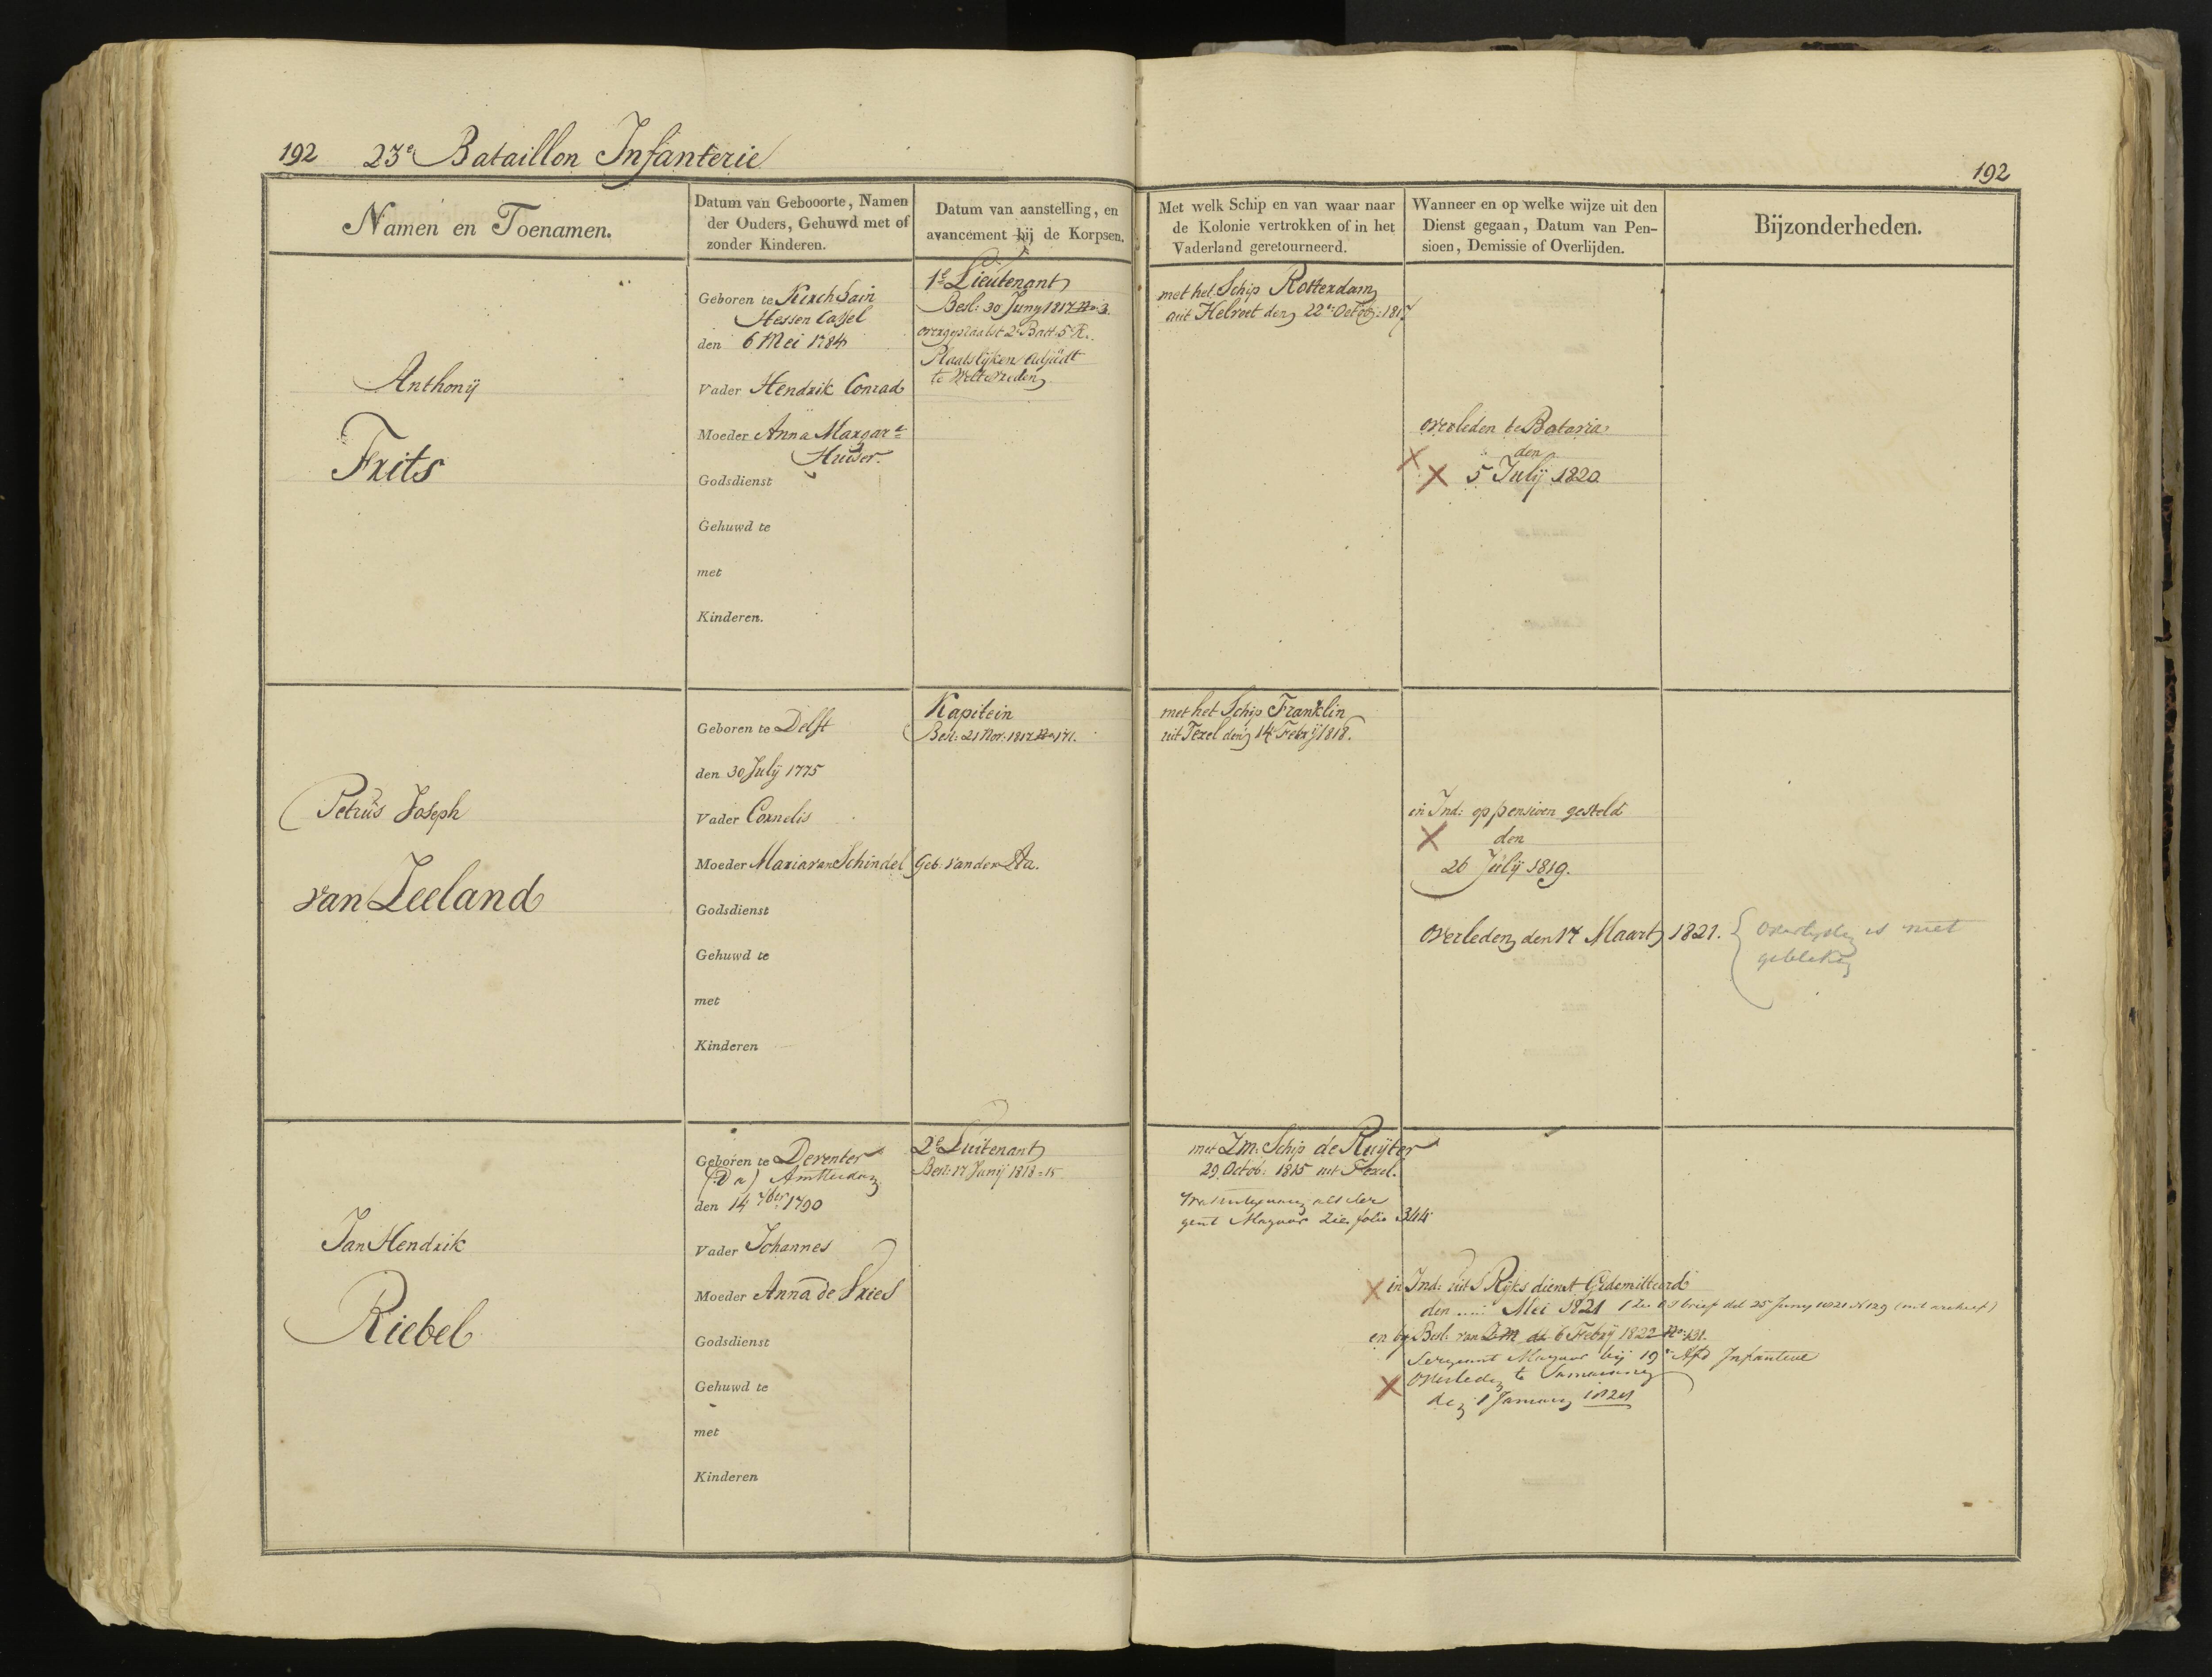 192 23e Bataillon Infanterie
192
Namen en Toenamen.
Datum van Gebooorte, Namen
der Ouders, Gehuwd met of
zonder Kinderen.
Datum van aanstelling, en
avancement bij de Korpsen.
Met welk Schip en van waar naar
de Kolonie vertrokken of in het
Vaderland geretourneerd.
Wanneer en op welke wijze uit den
Dienst gegaan, Datum van Pen-
sioen, Demissie of Overlijden.
Bijzonderheden.
Anthonij
Frits
Geboren te Kirchhain
Hessen Cassel
den 6 Mei 1784
Vader Hendrik Conrad
Moeder Anna Margar:a
Huiser.
Godsdienst
Gehuwd te
met
Kinderen.
1e Lieutenant
Besl: 30 Juny 1817 No 3.
overgeplaatst 2e Batt. 5e R.
Plaatslijken Adjudt
te Weltevreden
met het Schip Rotterdam
uit Helvoet den 22e October 1817
overleden te Batavia
den
5 Julij 1820
Petrus Joseph
van Zeeland
Geboren te Delft
den 30 Julij 1775
Vader Cornelis
Moeder Maria van Schindel Geb: van der Aa.
Godsdienst
Gehuwd te
met
Kinderen
Kapitein
Besl: 21 Nov: 1817 No 171.
met het Schip Franklin
uit Texel den 14 Febrij 1818.
in Ind: op pensioen gesteld
den
26 Julij 1819.
Overleden den 17 Maart 1821.
Overlijden is niet
gebleken
Jan Hendrik
Riebel
Geboren te Deventer
Amsterdam
den 14 7ber 1790
Vader Johannes
Moeder Anna de Vries
Godsdienst
Gehuwd te
met
Kinderen
2e Luitenant
Besl: 17 Junij 1818 15
met Zm: Schip de Ruijter
29 Octob: 1815 uit Texel.
als Ser
gent Majoor Zie folio 344
in Ind: uit 's Rijks dienst Gedemitteerd
den .... Mei 1821 brief dd 25 Juny 1821 N 129
en bij Besl: van ZM dd 6 Febrij 1822 No 131.
Sergeant Majoor bij 19e Afd Infanterie
Overleden te Samarang
den 1 January